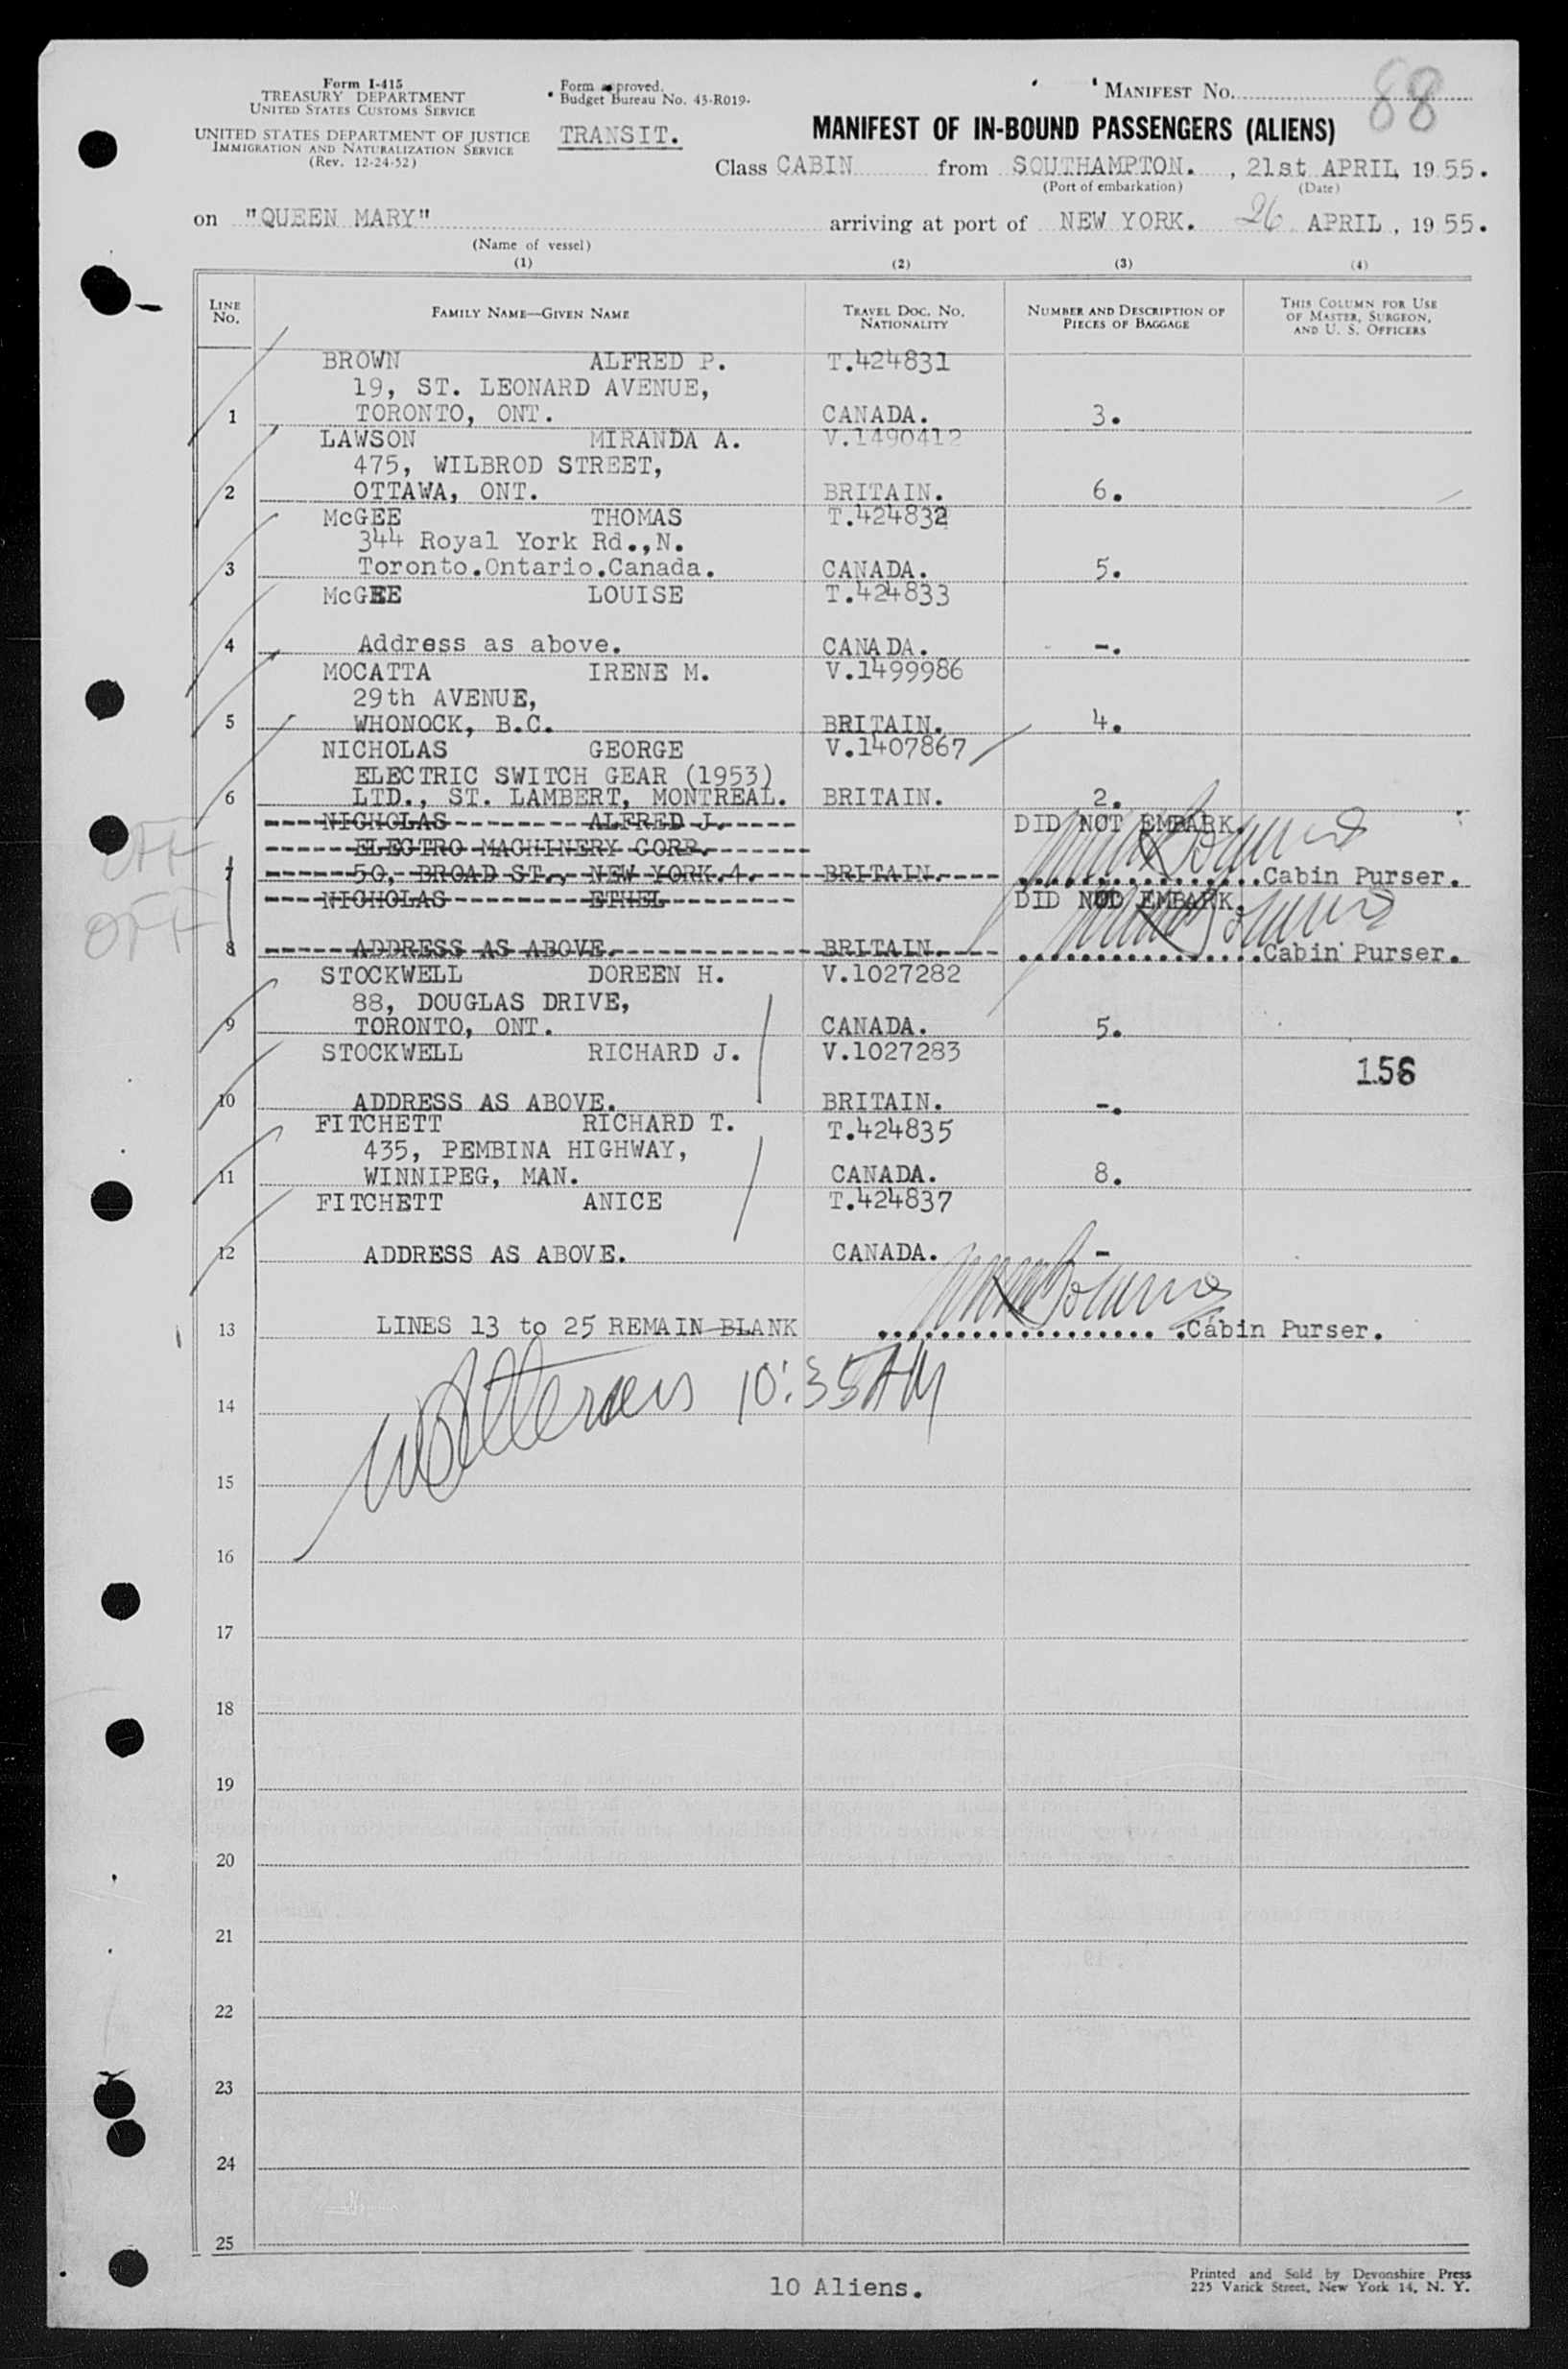 Form I-415
TREASURY DEPARTMENT
UNITED STATES CUSTOMS SERVICE
UNITED STATES DEPARTMENT OF JUSTICE
IMMIGRATION AND NATURALIZATION SERVICE
(Rev. 12-24-52)
Form approved.
Budget Bureau No. 43-R019.
TRANSIT.
MANIFEST NO. 88
MANIFEST OF IN-BOUND PASSENGERS (ALIENS)
Class CABIN from SOUTHAMPTON. , 21st APRIL, 1955.
(Port of embarkation) (Date)
on "QUEEN MARY" arriving at port of NEW YORK. 26 APRIL, 1955.
(Name of vessel)
(1) (2) (3) (4)
LINE NO. FAMILY NAME—GIVEN NAME TRAVEL DOC. NO. NATIONALITY NUMBER AND DESCRIPTION OF PIECES OF BAGGAGE THIS COLUMN FOR USE OF MASTER, SURGEON, AND U. S. OFFICERS
BROWN ALFRED P. T.424831
19, ST. LEONARD AVENUE,
1 TORONTO, ONT. CANADA. 3.
LAWSON MIRANDA A. V.1490412
475, WILBROD STREET,
2 OTTAWA, ONT. BRITAIN. 6.
McGEE THOMAS T.424832
344 Royal York Rd.,N.
3 Toronto.Ontario.Canada. CANADA. 5.
McGEE LOUISE T.424833
4 Address as above. CANADA. -.
MOCATTA IRENE M. V.1499986
29th AVENUE,
5 WHONOCK, B.C. BRITAIN. 4.
NICHOLAS GEORGE V.1407867
ELECTRIC SWITCH GEAR (1953)
6 LTD., ST. LAMBERT, MONTREAL. BRITAIN. 2.
NICHOLAS ALFRED J. DID NOT EMBARK.
OFF ELECTRO MACHINERY CORP.
7 50, BROAD ST., NEW YORK.4. BRITAIN. Cabin Purser.
NICHOLAS ETHEL DID NOT EMBARK.
OFF
8 ADDRESS AS ABOVE. BRITAIN. Cabin Purser.
STOCKWELL DOREEN H. V.1027282
88, DOUGLAS DRIVE,
9 TORONTO, ONT. CANADA. 5.
STOCKWELL RICHARD J. V.1027283
156
10 ADDRESS AS ABOVE. BRITAIN. -.
FITCHETT RICHARD T. T.424835
435, PEMBINA HIGHWAY,
11 WINNIPEG, MAN. CANADA. 8.
FITCHETT ANICE T.424837
12 ADDRESS AS ABOVE. CANADA. -
13 LINES 13 to 25 REMAIN BLANK Cabin Purser.
10:35 AM
14
15
16
17
18
19
20
21
22
23
24
25
10 Aliens.
Printed and Sold by Devonshire Press
225 Varick Street, New York 14, N. Y.